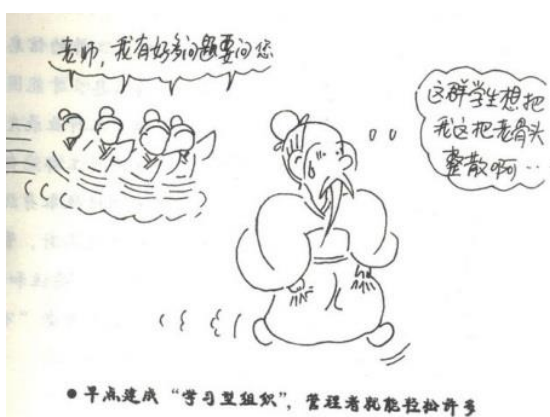 老师，我有好多问题要问您
这群学生想把
我这把老骨头
整散啊··
●早点建成“学习型组织”，管理者就能轻松许多